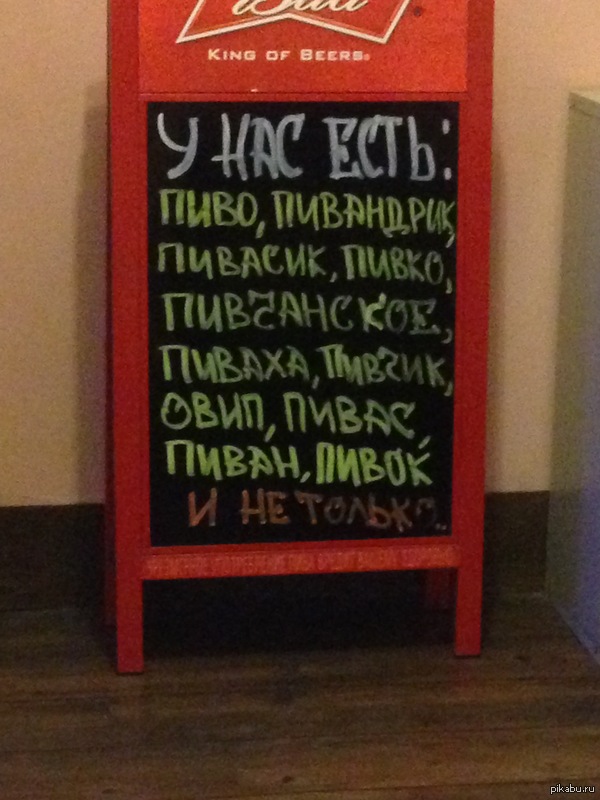 Bud
KING OF BEERS®
У НАС ЕСТЬ:
ПИВО, ПИВАНДРИК,
ПИВАСИК, ПИВКО,
ПИВЧАНСКОЕ,
ПИВАХА, ПИВЧИК,
ОВИП, ПИВАС,
ПИВАН, ПИВОК
И НЕ ТОЛЬКО..
pikabu.ru